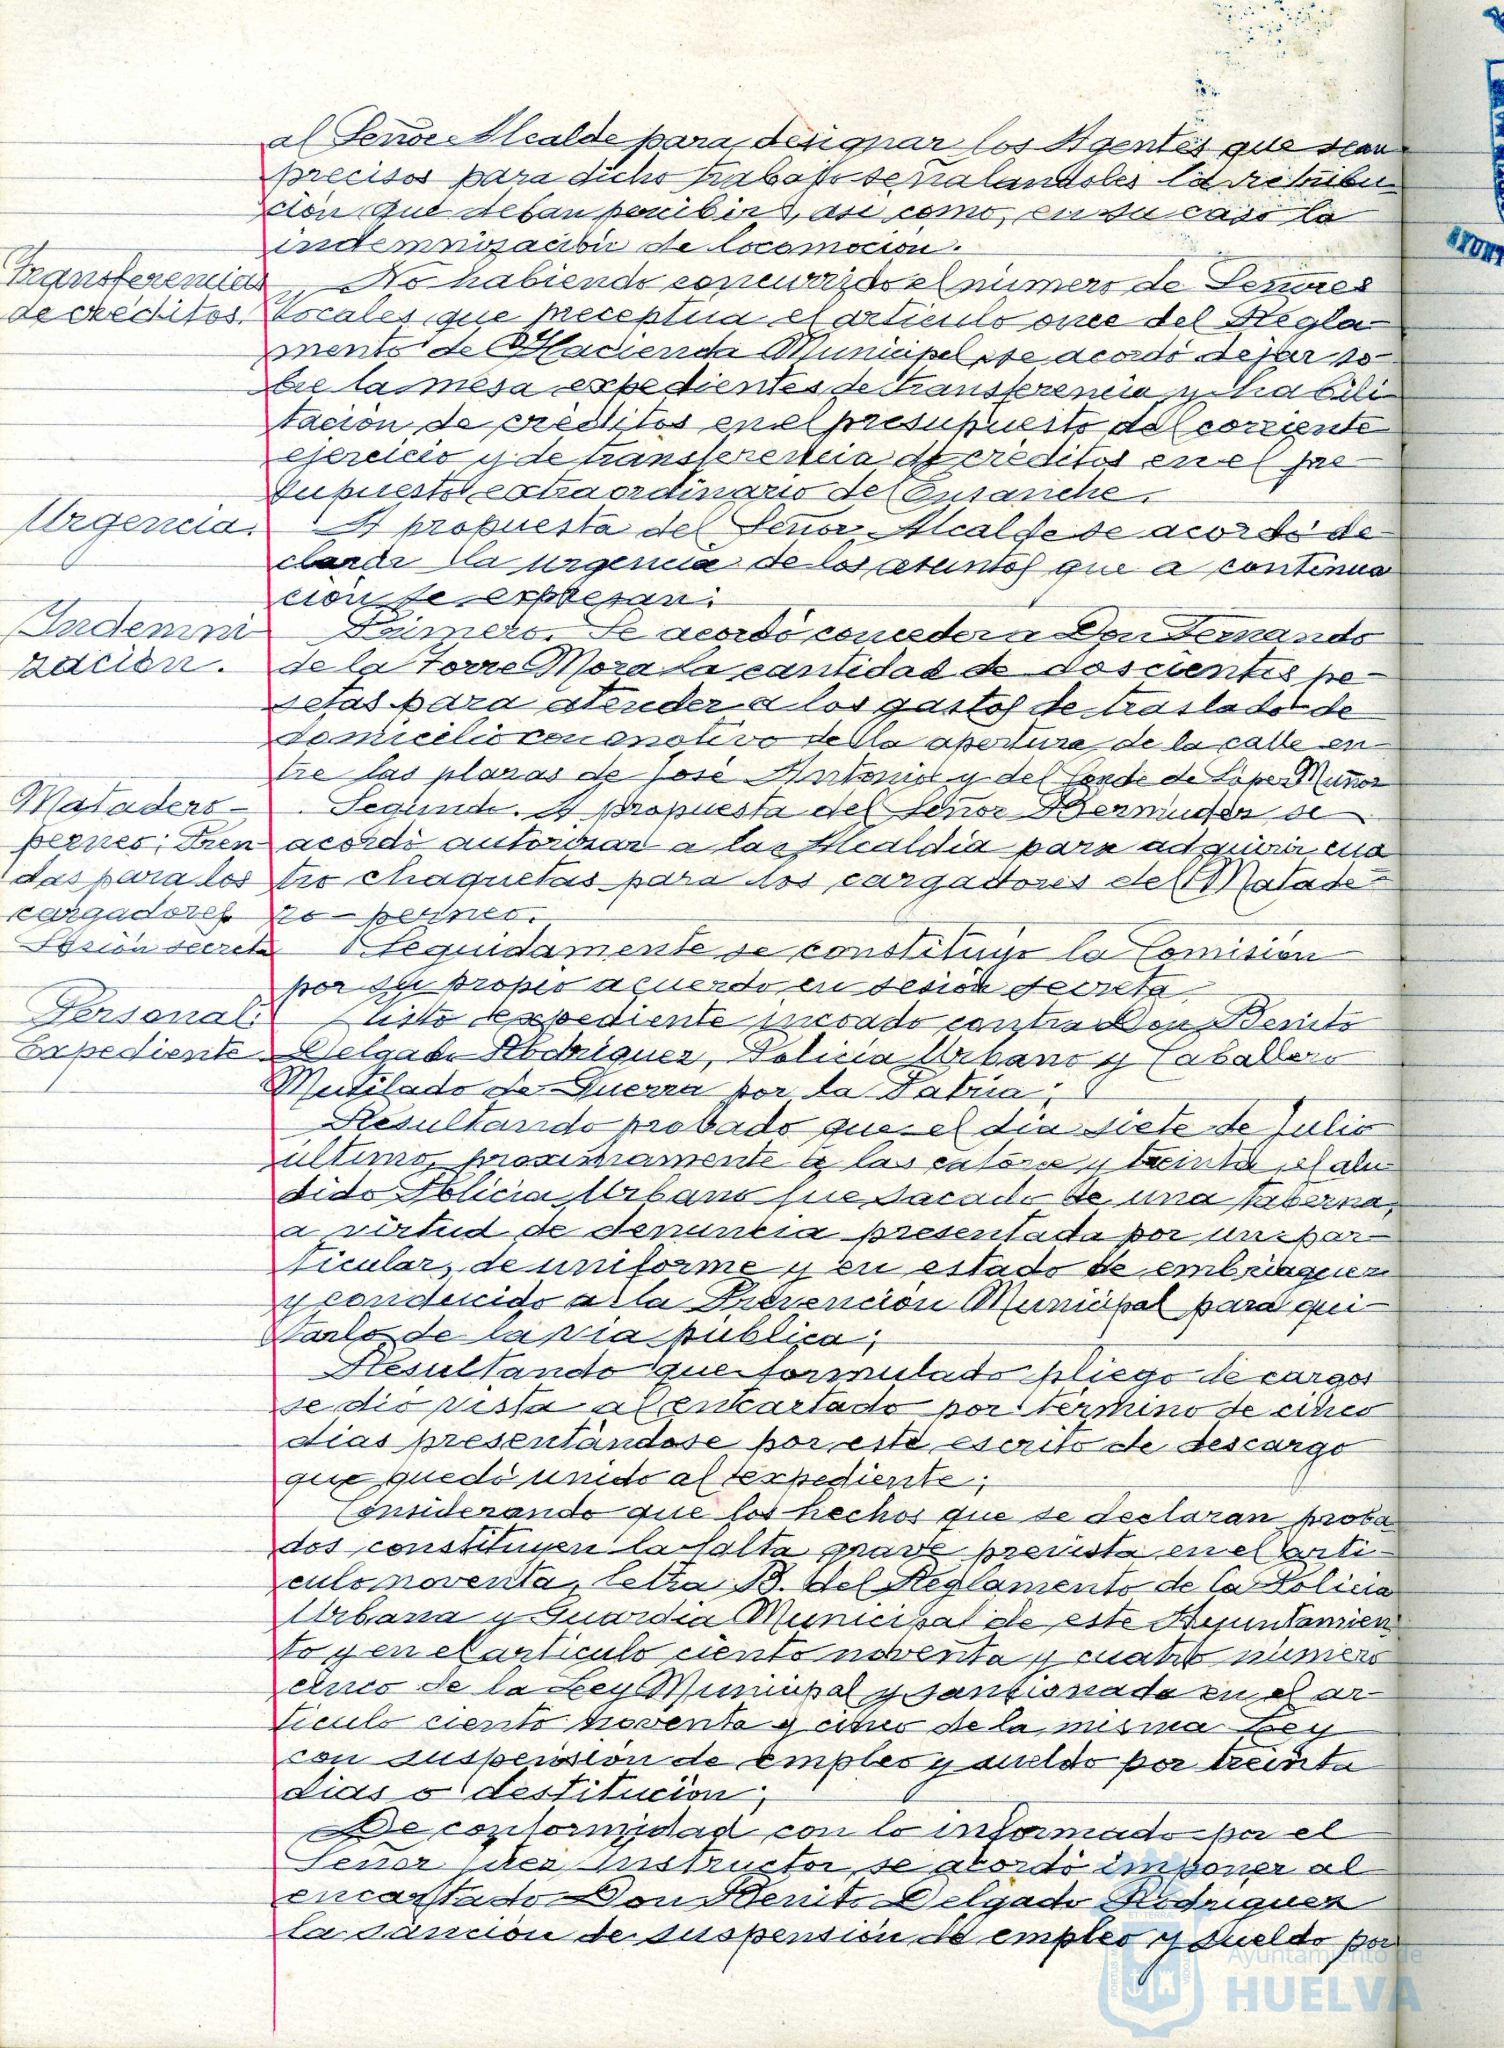 al Señor Alcalde para designar los Agentes que sean
precisos para dicho trabajo señalandoles la retribu
ción que deban percibir, asi como, en su caso la
indemnización de locomoción.
Transferencias
de créditos.
No habiendo concurrido el número de Señores
Vocales que preceptúa el artículo once del Regla-
mento de Hacienda Municipal, se acordó dejar so-
bre la mesa expedientes de transferencia y habili-
tación de créditos en el presupuesto del corriente
ejercicio y de transferencia de créditos en el pre-
supuesto extraordinario del Ensanche.
Urgencia.
A propuesta del Señor Alcalde se acordó de-
clarar la urgencia de los asuntos que a continua
ción se expresan:
Indemni
zación.
Primero. Se acordó conceder a Don Fernando
de la Torre Mora la cantidad de doscientas pe-
setas para atender a los gastos de traslado de
domicilio con motivo de la apertura de la calle en-
tre las plazas de José Antonio y del Conde de López Muñoz
Matadero-
pernes; Pren
das para los
cargadores
Segundo. A propuesta del Señor Bermudez se
acordó autorizar a la Alcaldia para adquirir cua
tro chaquetas para los cargadores del Matade-
ro-pernes.
Sesión secreta
Seguidamente se constituyó la Comisión
por su propio acuerdo en sesión secreta.
Personal:
Expediente
Visto expediente incoado contra Don Benito
Delgado Rodriguez, Policia Urbano y Caballero
Mutilado de Guerra por la Patria;
Resultando probado que el dia siete de Julio
último, proximamente a las catorce y treinta, el alu-
dido Policia Urbano fue sacado de una taberna,
a virtud de denuncia presentada por un par-
ticular, de uniforme y en estado de embriaguez
y conducido a la Prevención Municipal para qui-
tarlo de la via pública;
Resultando que formulado pliego de cargos
se dió vista al encartado por término de cinco
dias presentándose por este escrito de descargo
que quedó unido al expediente;
Considerando que los hechos que se declaran proba
dos constituyen la falta grave prevista en el arti-
culo noventa, letra B. del Reglamento de la Policia
Urbana y Guardia Municipal de este Ayuntamien
to y en el articulo ciento noventa y cuatro número
cinco de la Ley Municipal y sancionada en el ar-
ticulo ciento noventa y cinco de la misma Ley
con suspensión de empleo y sueldo por treinta
dias o destitución;
De conformidad con lo informado por el
Señor Juez Instructor, se acordó imponer al
encartado Don Benito Delgado Rodriguez
la sanción de suspensión de empleo y sueldo por
Ayuntamiento de
HUELVA